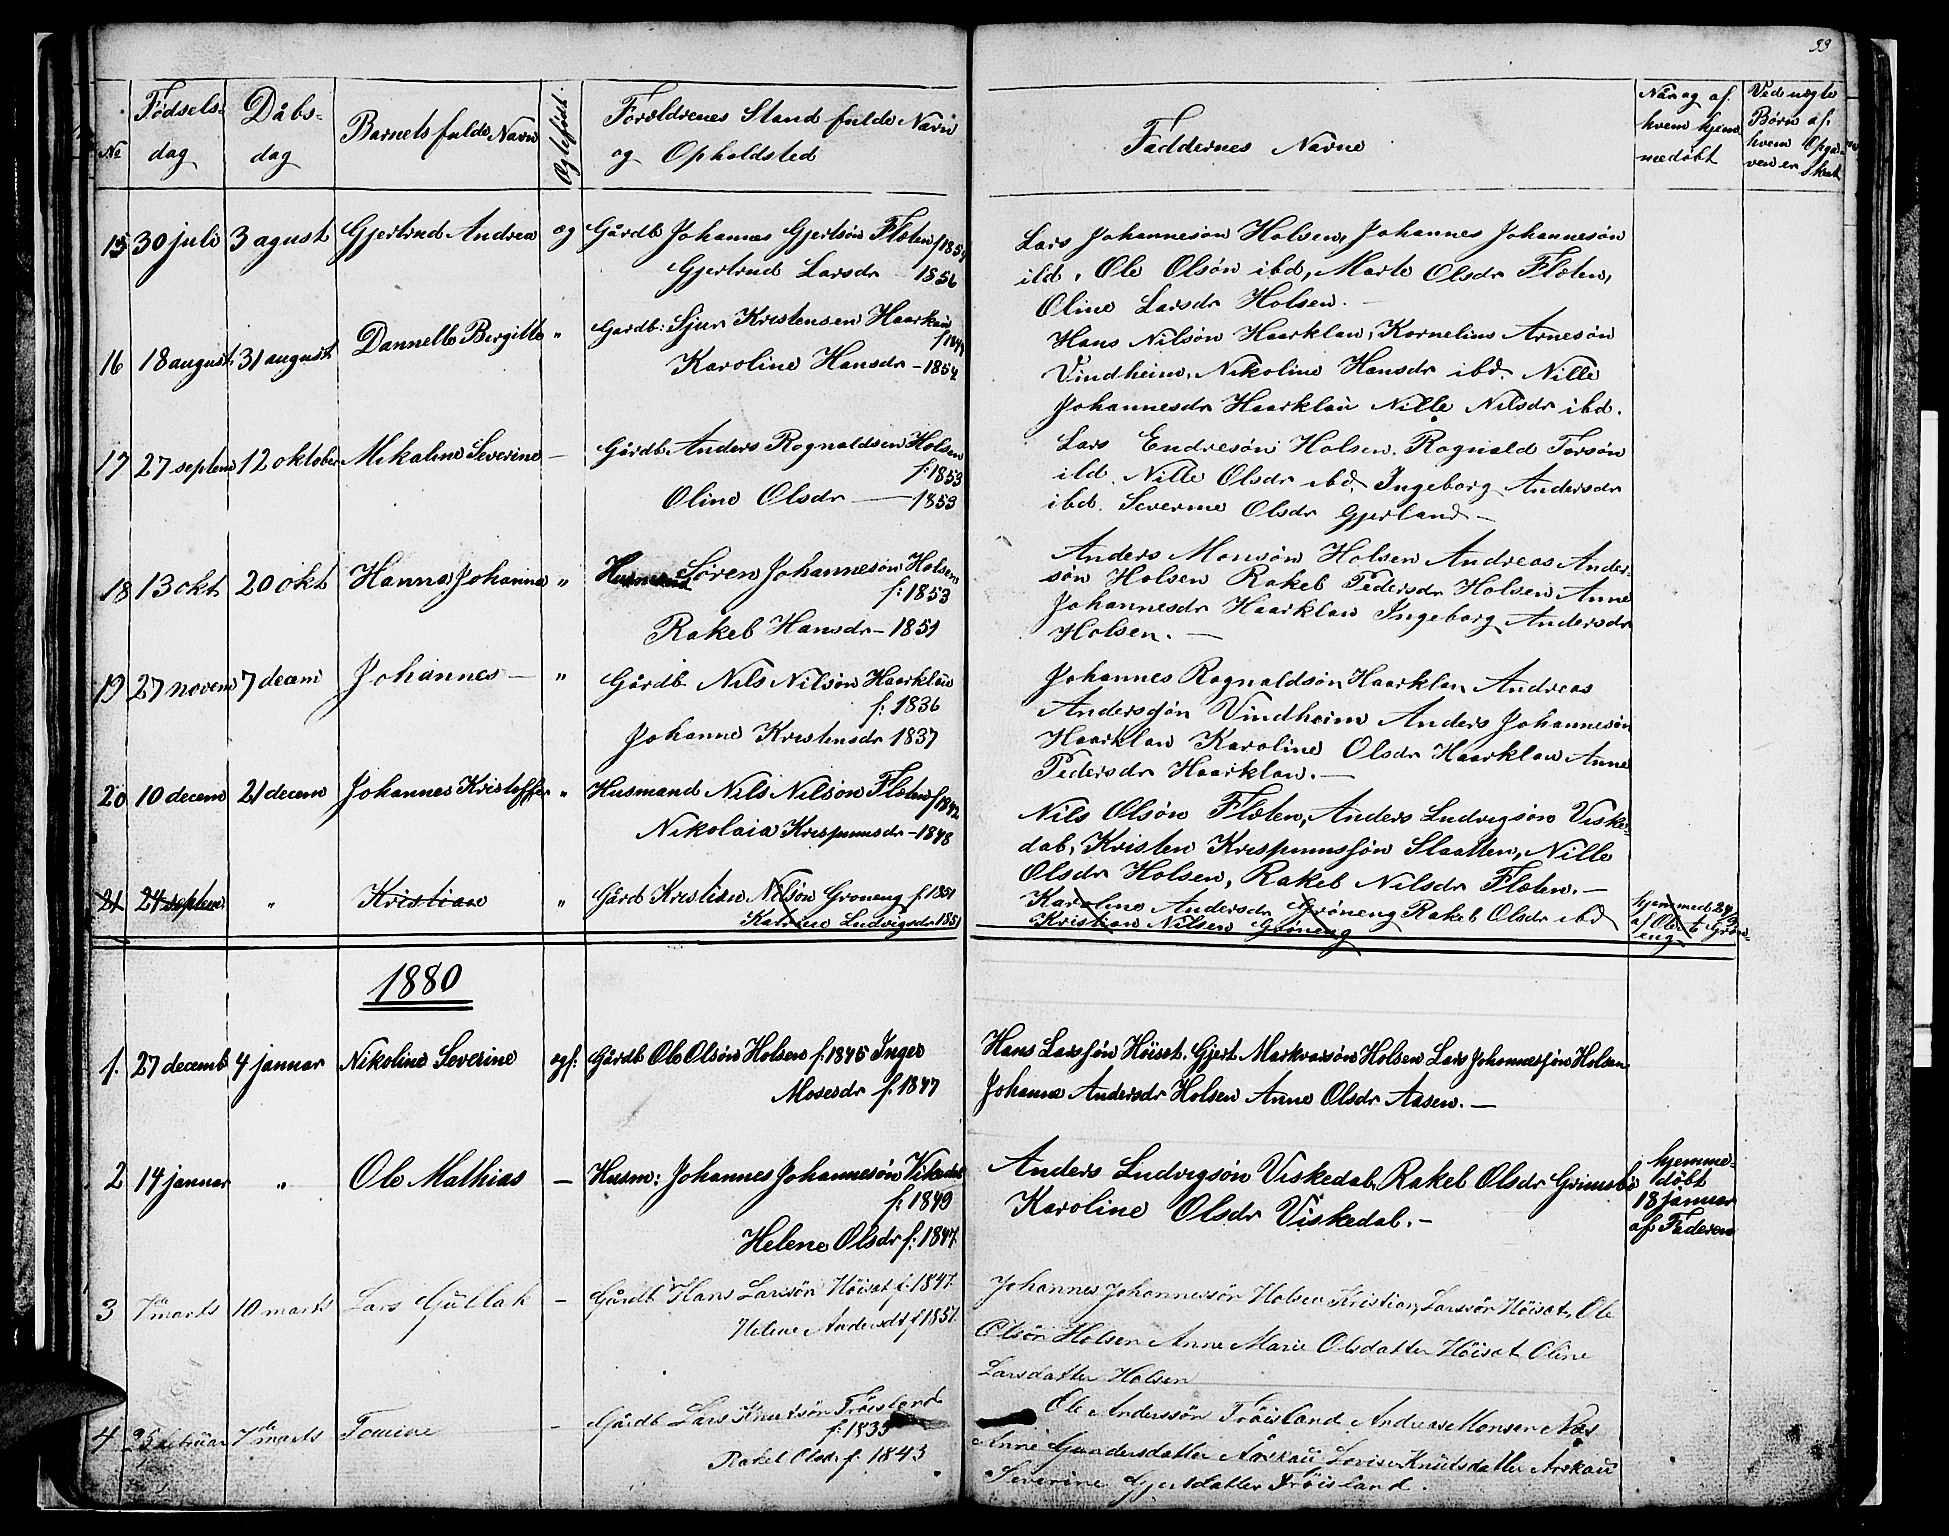 33
No
Fødsels-
dag
Dåbs-
dag
Barnets fulde Navn
Ægtefødt
Forældrenes Stand fulde Navn
og Opholdsted
Faddernes Navne
Når og af
hvem hjem-
medøbt
Ved uægte
Børn af
hvem Opga-
ven er Skeet
15 30 juli 3 agust Gjertrud Andrea og Gårdb Johannes Gjertsøn Flæten f 1854
Gjertrud Larsdr 1856
Lars Johannesøn Holsen, Johannes Johannesøn
ibd, Ole Olsøn ibd, Marte Olsdr Flæten,
Oline Larsdr Holsen. —
16 18 august 31 august Dannelle Bergitte " Gardb: Sjur Kristensen Haarklau
Karoline Hansdr - 1854
Hans Nilsøn Haarklau, Kornelius Arnesøn
Vindheim, Nikoline Hansdr ibd. Nille
Johannesdr Haarklau Nille Nilsdr ibd.
17 27 septem 12 oktober Mikaline Severine — Gårdb Anders Rognaldsen Holsen
f: 1853
Oline Olsdr — 1853
Lars Endresøn Holsen, Rognald Torsøn
ibd. Nille Olsdr ibd, Ingeborg Andersdr
ibd. Severine Olsdr Gjerland —
18 13 okt 20 okt Hanna Johanna " Husmand Søren Johannesøn Holsen
f: 1853
Rakel Hansdr - 1851
Anders Monsøn Holsen Andreas Ander-
søn Holsen Rakel Pedersdr Holsen Anne
Johannesdr Haarklau Ingeborg Andersdr
Holsen. —
19 27 novem 7 decem Johannes — " Gårdb Nils Nilsøn Haarklau
f: 1836
Johanne Kristensdr 1837
Johannes Rognaldsøn Haarklau Andreas
Andersøn Vindheim Anders Johannesøn
Haarklau Karoline Olsdr Haarklau Anne
Pedersdr Haarklau. —
20 10 decem 21 decem Johannes Kristoffer " Husmand Nils Nilsøn Flæten f 1842
Nikolaia Krispinusdr - 1848
Nils Olsøn Flæten, Anders Ludvigsøn Viske-
dal, Kristen Krispinussøn Slaatten, Nille
Olsdr Holsen, Rakel Nilsdr Flæten. —
21 24 septem " Kristian " Gårdb Kristian Nilsøn Grøneng f. 1851
Katrine Ludvigsdr 1851
Karoline Andersdr Grøneng Rakel Olsdr ibd
Kristian Nilsen Grøneng
hjemmed 24/9
af Ole Grøn-
eng
1880
1. 27 decemb 4 januar Nikoline Severine ægf. Gårdb Ole Olsøn Holsen f. 1845 Inger
Mosesdr f. 1847
Hans Larssøn Høiset, Gjert Markvarsøn Holsen Lars Johannessøn Holsen
Johanne Andersdr Holsen Anne Olsdr Aasen. —
2 14 januar " Ole Mathias — Husm: Johannes Johannesøn Viskedal
f: 1849
Helene Olsdr f: 1847
Anders Ludvigsøn Viskedal, Rakel Olsdr Grimsbø
Karoline Olsdr Viskedal. —
hjemme-
døbt
18 januar
af Faderen
3 7de marts 10 marts Lars Gullak — Gårdb Hans Larssøn Høiset f. 1847.
Helene Andersdt f 1851.
Johannes Johannessøn Holsen Kristian Larssøn Høiset, Ole
Olsøn Holsen Anne Marie Olsdatter Høiset Oline
Larsdatter Holsen
4 25 februar 7de marts Tomine — Gårdb Lars Knutsøn Trøisland
f: 1835
Rakel Olsdr f. 1843
Ole Anderssøn Trøisland Andreas Monsen Næs
Anne Gundersdatter Årskau Lovise Knutsdatter Årskau
Severine Gjertsdatter Trøisland.